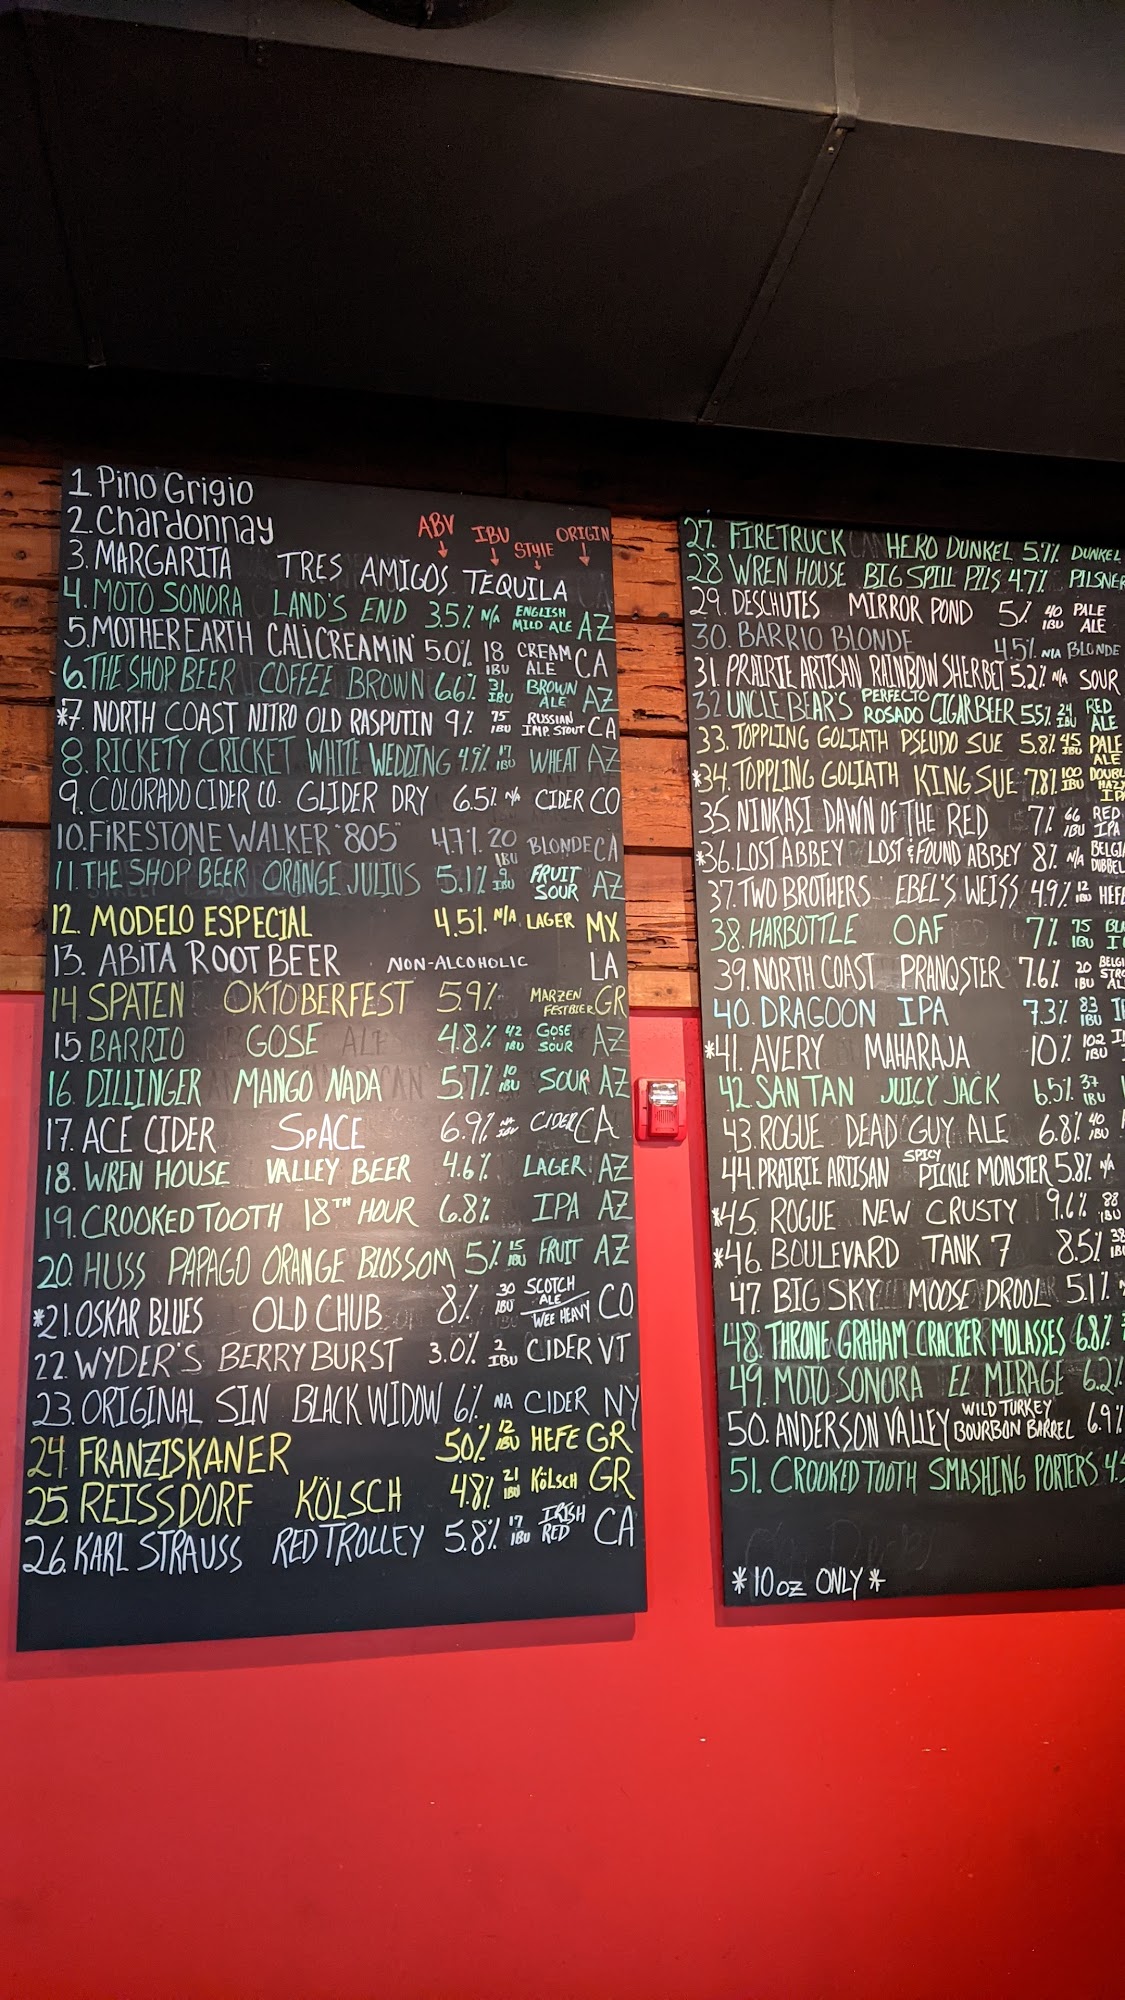 1. Pino Grigio
2. Chardonnay
ABV IBU STYLE ORIGIN
3. MARGARITA TRES AMIGOS TEQUILA
4. MOTO SONORA LAND'S END 3.5% N/A ENGLISH MILD ALE AZ
5. MOTHER EARTH CALI CREAMIN' 5.0% 18 IBU CREAM ALE CA
6. THE SHOP BEER COFFEE BROWN 6.6% 31 IBU BROWN ALE AZ
*7. NORTH COAST NITRO OLD RASPUTIN 9% 75 IBU RUSSIAN IMP. STOUT CA
8. RICKETY CRICKET WHITE WEDDING 4.9% 17 IBU WHEAT AZ
9. COLORADO CIDER CO. GLIDER DRY 6.5% N/A CIDER CO
10. FIRESTONE WALKER "805" 4.7% 20 IBU BLONDE CA
11. THE SHOP BEER ORANGE JULIUS 5.1% 9 IBU FRUIT SOUR AZ
12. MODELO ESPECIAL 4.5% N/A LAGER MX
13. ABITA ROOT BEER NON-ALCOHOLIC LA
14. SPATEN OKTOBERFEST 5.9% MARZEN FESTBIER GR
15. BARRIO GOSE 4.8% 42 IBU GOSE SOUR AZ
16. DILLINGER MANGO NADA 5.7% 10 IBU SOUR AZ
17. ACE CIDER SpACE 6.9% CIDER CA
18. WREN HOUSE VALLEY BEER 4.6% LAGER AZ
19. CROOKED TOOTH 18TH HOUR 6.8% IPA AZ
20. HUSS PAPAGO ORANGE BLOSSOM 5% 15 IBU FRUIT AZ
*21. OSKAR BLUES OLD CHUB 8% 30 IBU SCOTCH ALE WEE HEAVY CO
22. WYDER'S BERRY BURST 3.0% 2 IBU CIDER VT
23. ORIGINAL SIN BLACK WIDOW 6% NA CIDER NY
24. FRANZISKANER 5.0% 12 IBU HEFE GR
25. REISSDORF KÖLSCH 4.8% 21 IBU KÖLSCH GR
26. KARL STRAUSS RED TROLLEY 5.8% 17 IBU IRISH RED CA
27. FIRETRUCK HERO DUNKEL 5.7% DUNKEL
28 WREN HOUSE BIG SPILL PILS 4.7% PILSNER
29. DESCHUTES MIRROR POND 5% 40 IBU PALE ALE
30. BARRIO BLONDE 4.5% N/A BLONDE
31. PRAIRIE ARTISAN RAINBOW SHERBET 5.2% N/A SOUR
32. UNCLE BEAR'S PERFECTO ROSADO CIGAR BEER 5.5% 24 IBU RED ALE
33. TOPPLING GOLIATH PSEUDO SUE 5.8% 45 IBU PALE ALE
*34. TOPPLING GOLIATH KING SUE 7.8% 100 IBU DOUBL HAZY IPA
35. NINKASI DAWN OF THE RED 7% 66 IBU RED IPA
*36. LOST ABBEY LOST & FOUND ABBEY 8% N/A BELGIA DUBBEL
37. TWO BROTHERS EBEL'S WEISS 4.9% 12 IBU HEFE
38. HARBOTTLE OAF 7% 75 IBU BL
39. NORTH COAST PRANQSTER 7.6% 20 IBU BELGI STRO AL
40. DRAGOON IPA 7.3% 83 IBU
*41. AVERY MAHARAJA 10% 102 IBU
42. SAN TAN JUICY JACK 6.5% 37 IBU
43. ROGUE DEAD GUY ALE 6.8% 40 IBU
44. PRAIRIE ARTISAN SPICY PICKLE MONSTER 5.8% N/A
*45. ROGUE NEW CRUSTY 9.6% 88 IBU
*46. BOULEVARD TANK 7 8.5% 38 IBU
47. BIG SKY MOOSE DROOL 5.1%
48. THRONE GRAHAM CRACKER MOLASSES 6.8%
49. MOTO SONORA EL MIRAGE 6.2%
50. ANDERSON VALLEY WILD TURKEY BOURBON BARREL 6.9%
51. CROOKED TOOTH SMASHING PORTERS 4.
*10 oz ONLY*